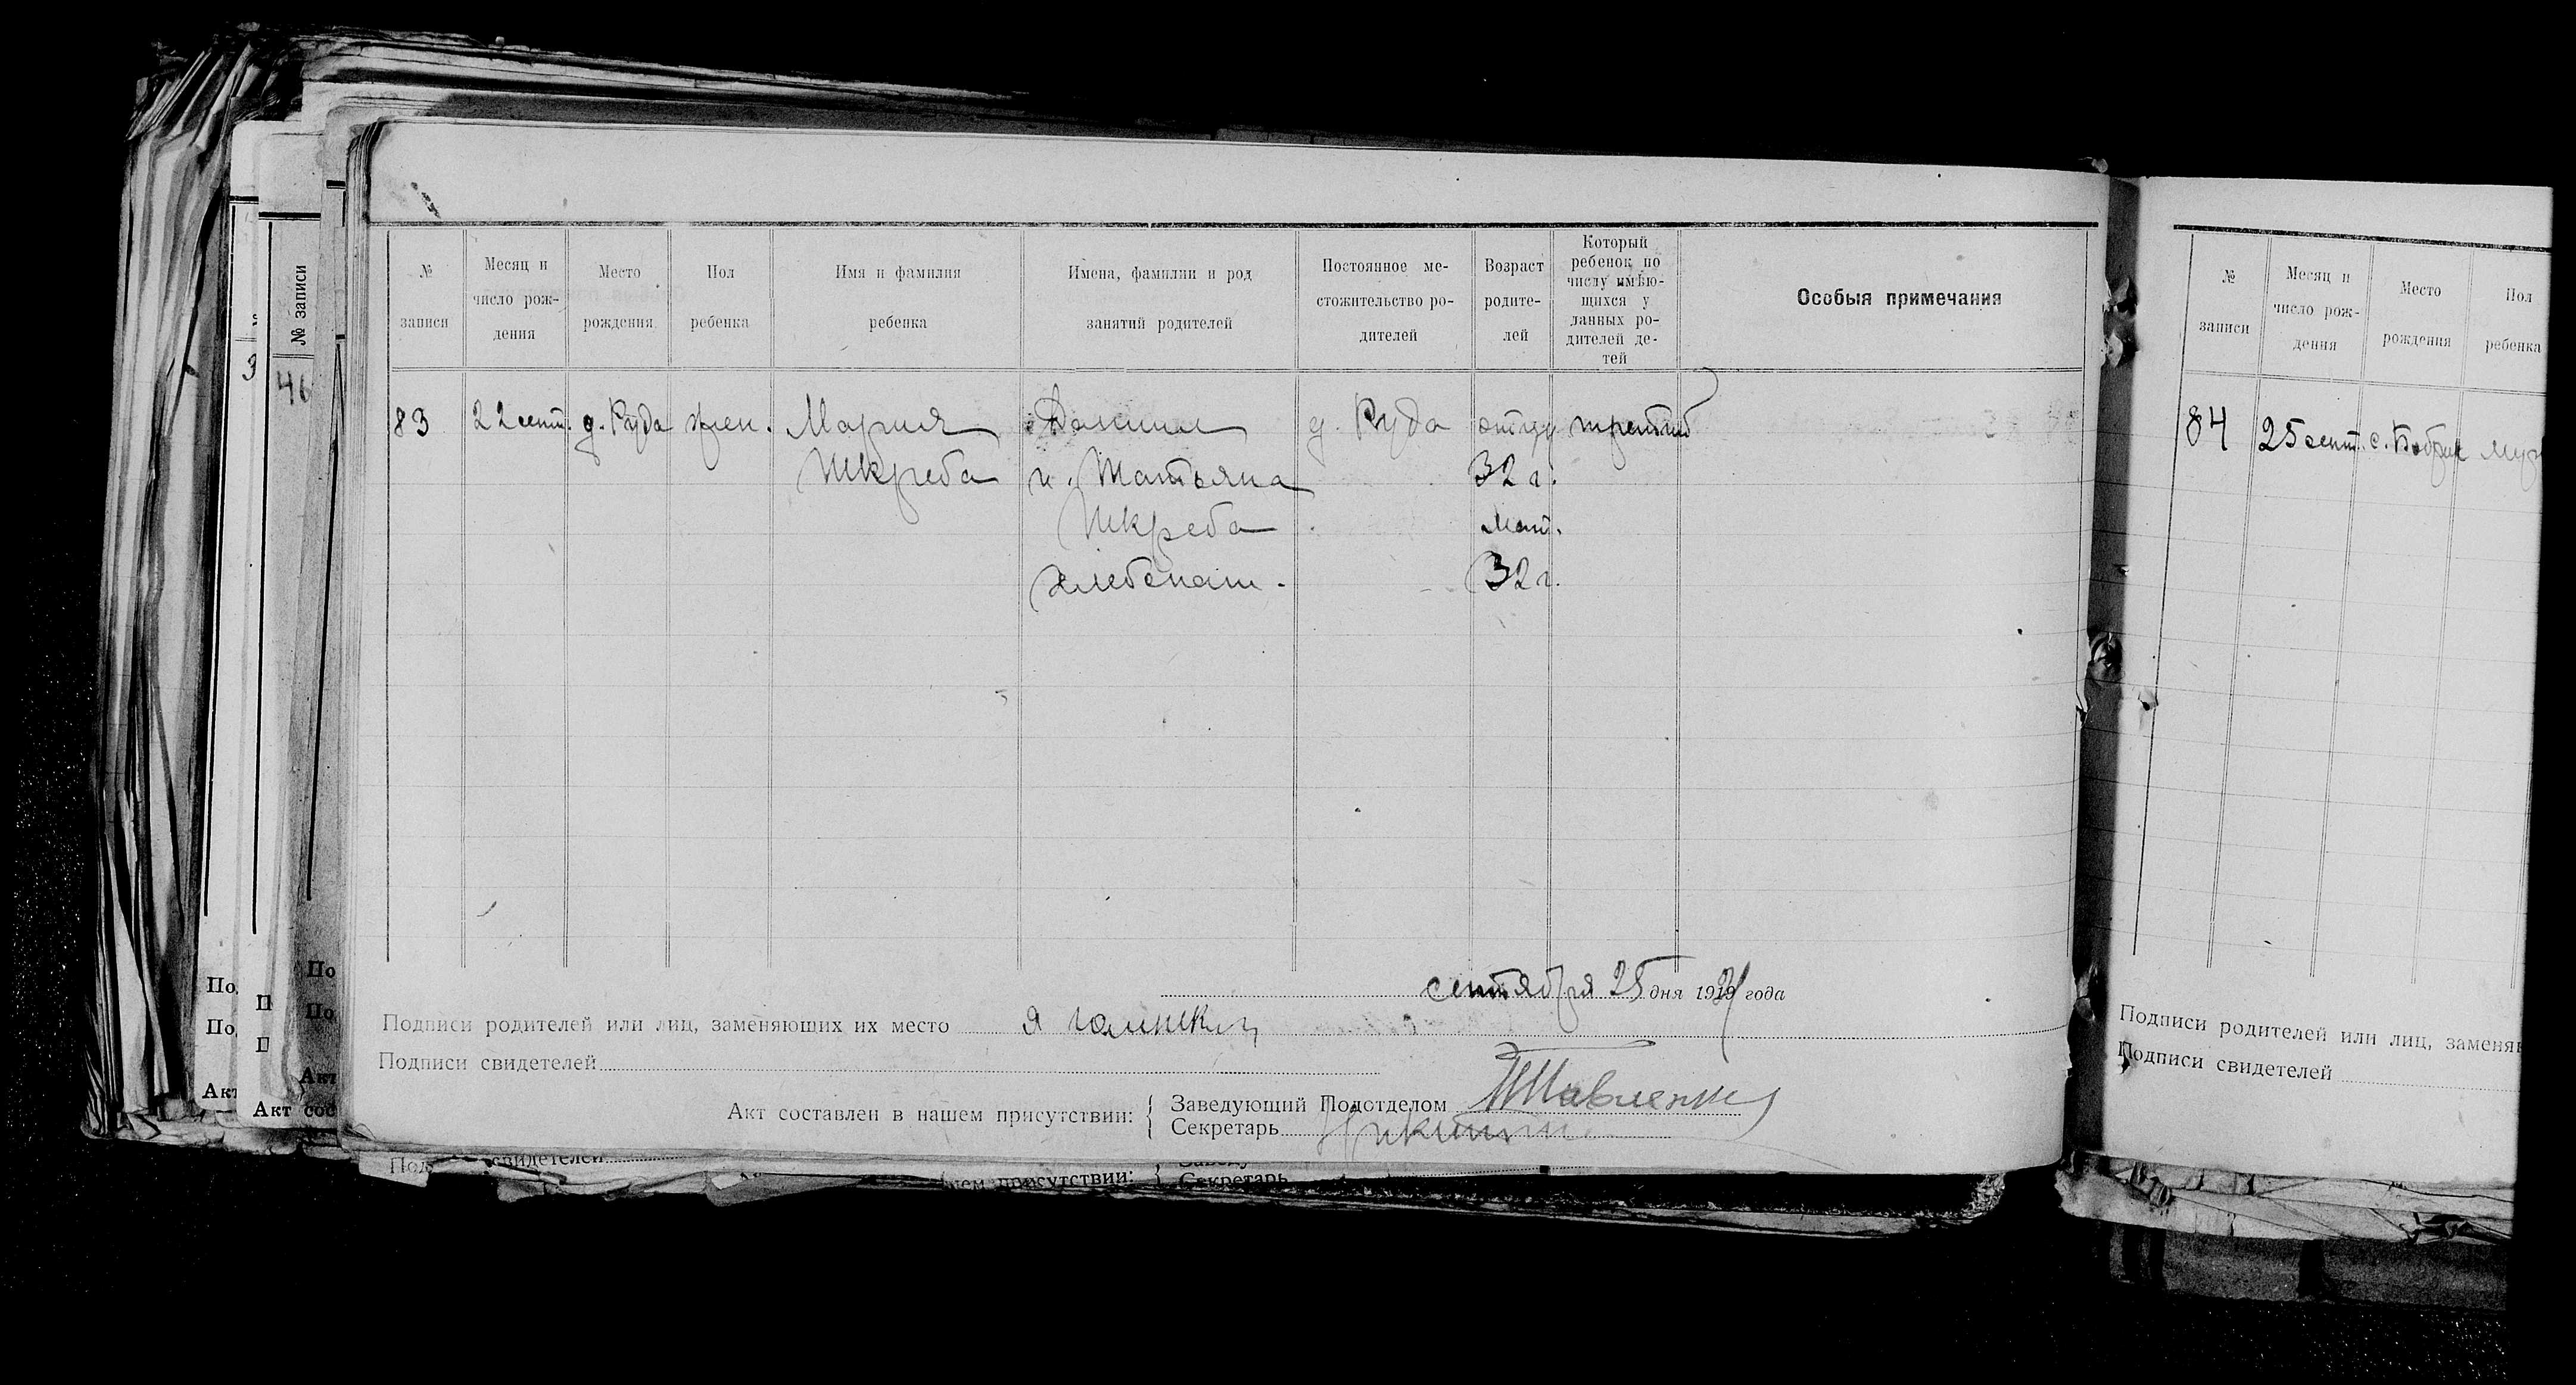 № записи
Месяц и число рождения
Место рождения
Пол ребенка
Имя и фамилия ребенка
Имена, фамилии и род занятий родителей
Постоянное ме-
стожительство ро-
дителей
Возраст
родите-
лей
Который
ребенок по
числу имѣю-
щихся у
данных ро-
дителей де-
тей
Особыя примечания
83
22 сент.
д. Руда
жен.
Мария
Шкреба
Даниил
и Татьяна
Шкреба
хлебопаш.
д. Руда
отцу
32 г.
мат.
32 г.
третий
сентября 25 дня 1921 года
Подписи родителей или лиц, заменяющих их место Я
Подписи свидетелей
Акт составлен в нашем присутствии:
Заведующий Подотделом
Секретарь Никитин
№ записи
46
3
По
По
Акт
П
П
Акт сос
По
По
Акт
свидетелей
присутствии:
Секретарь
№
записи
Месяц и
число рож-
дения
Место
рождения
Пол
ребенка
84
25 сент.
с. Бобрик
муж
Подписи родителей или лиц, заменяю
Подписи свидетелей